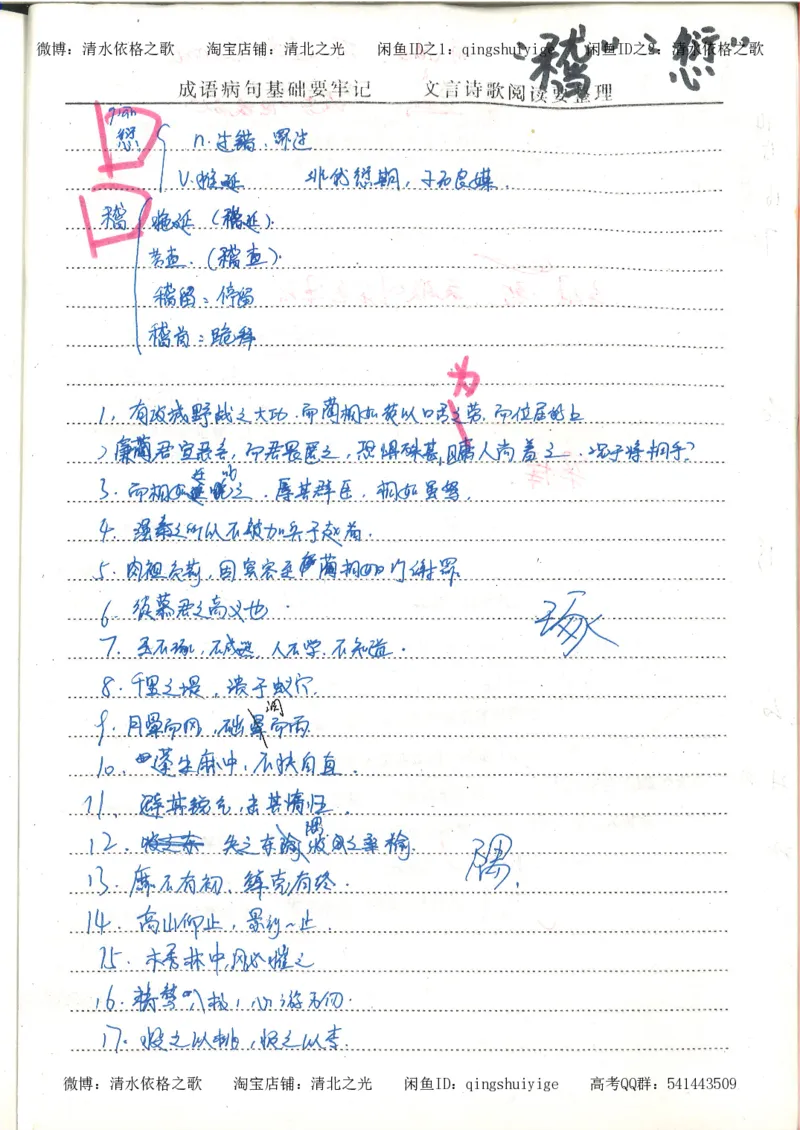 微博：清水依格之歌 淘宝店铺：清北之光 闲鱼ID之1：qingshuiyige 闲鱼ID之2：清水依格之歌
"稽"："愆"
成语病句基础要牢记 文言诗歌阅读要整理
qian
愆 n.过错.罪过
v.拖延 非我愆期，子无良媒.
稽 拖延（稽延）.
考查.（稽查）.
稽留：停留
稽首：跪拜
为
1，有攻城野战之大功.而蔺相如徒以口舌之劳.而位居我上
2 廉君宣恶言，而君畏匿之，恐惧殊甚，且庸人尚羞之.况于将相乎？
3.而相如廷叱之.辱其群臣.相如虽驽.
4.强秦之所以不敢加兵于赵者.
5.肉袒负荆，因宾客至蔺相如门谢罪
6.徒慕君之高义也. 琢
7.玉不琢，不成器.人不学.不知道.
8.千里之堤，溃于蚁穴.
9.月晕而风，础润而雨.
10.蓬生麻中，不扶自直.
11.避其锐气，击其惰归.
12. 失之东隅 收之桑榆. 隅.
13.靡不有初、鲜克有终.
14.高山仰止，景行~止.
15.木秀林中，风必摧之
16.精骛八极，心游万仞.
17.投之以桃，报之以李.
微博：清水依格之歌 淘宝店铺：清北之光 闲鱼ID：qingshuiyige 高考QQ群：541443509